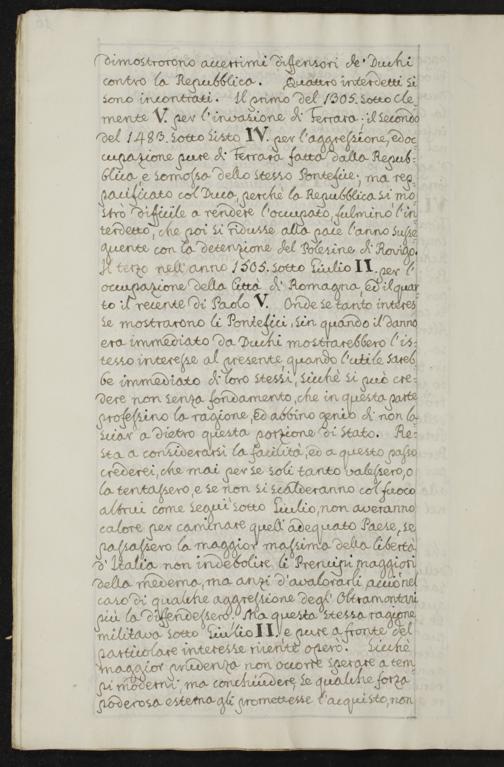 dimostrorono accerrimi diffensori de' Duchi
contro la Repubblica. Quattro interdetti si
sono incontrati. Il primo del 1305. sotto Cle
mente V. per l'invasione di Ferrara; il secondo
del 1483. sotto Sisto IV. per l'aggressione, ed oc
cupazione pure di Ferrara fatta dalla Repub=
blica, e somossa dello stesso Pontefice; ma rep
pacificato col Duca, perchè la Repubblica si mo
strò difficile a rendere l'occupato, fulminò l'in
terdetto, che poi si ridusse alla pace l'anno susse
quente con la detenzione del Polesine di Rovigo.
Il terzo nell'anno 1505. sotto Giulio II. per l'
occupazione della Città di Romagna, ed il quar
to il recente di Paolo V. Onde se tanto interes
se mostrarono li Pontefici, sin quando il danno
era immediato da Duchi mostrarebbero l'is=
tesso interesse al presente, quando l'utile sareb
be immediato di loro stessi, sicchè si può cre=
dere non senza fondamento, che in questa parte
professino la ragione, ed abbino genio di non la
sciar a dietro questa porzione di Stato. Re=
sta a considerarsi la facilità, ed a questo passo
crederei, che mai per se soli tanto valessero, o
la tentassero, e se non si scalderanno col fuoco
altrui come seguì sotto Giulio, non averanno
calore per caminare quell'adequato Paese, se
passassero la maggior massima della libertà
d'Italia non indebolire li Prencipi maggiori
della medema, ma anzi d'avalorarli, acciò nel
caso di qualche aggressione degl'Oltramontani
più la diffendessero. Ma questa stessa ragione
militava sotto Giulio II. e pure a fronte del
particolare interesse niente operò. Sicchè
maggior prudenza non occorre sperare a tem
pi moderni; ma conchiudere, se qualche forza
poderosa esterna gli promettesse l'acquisto, non